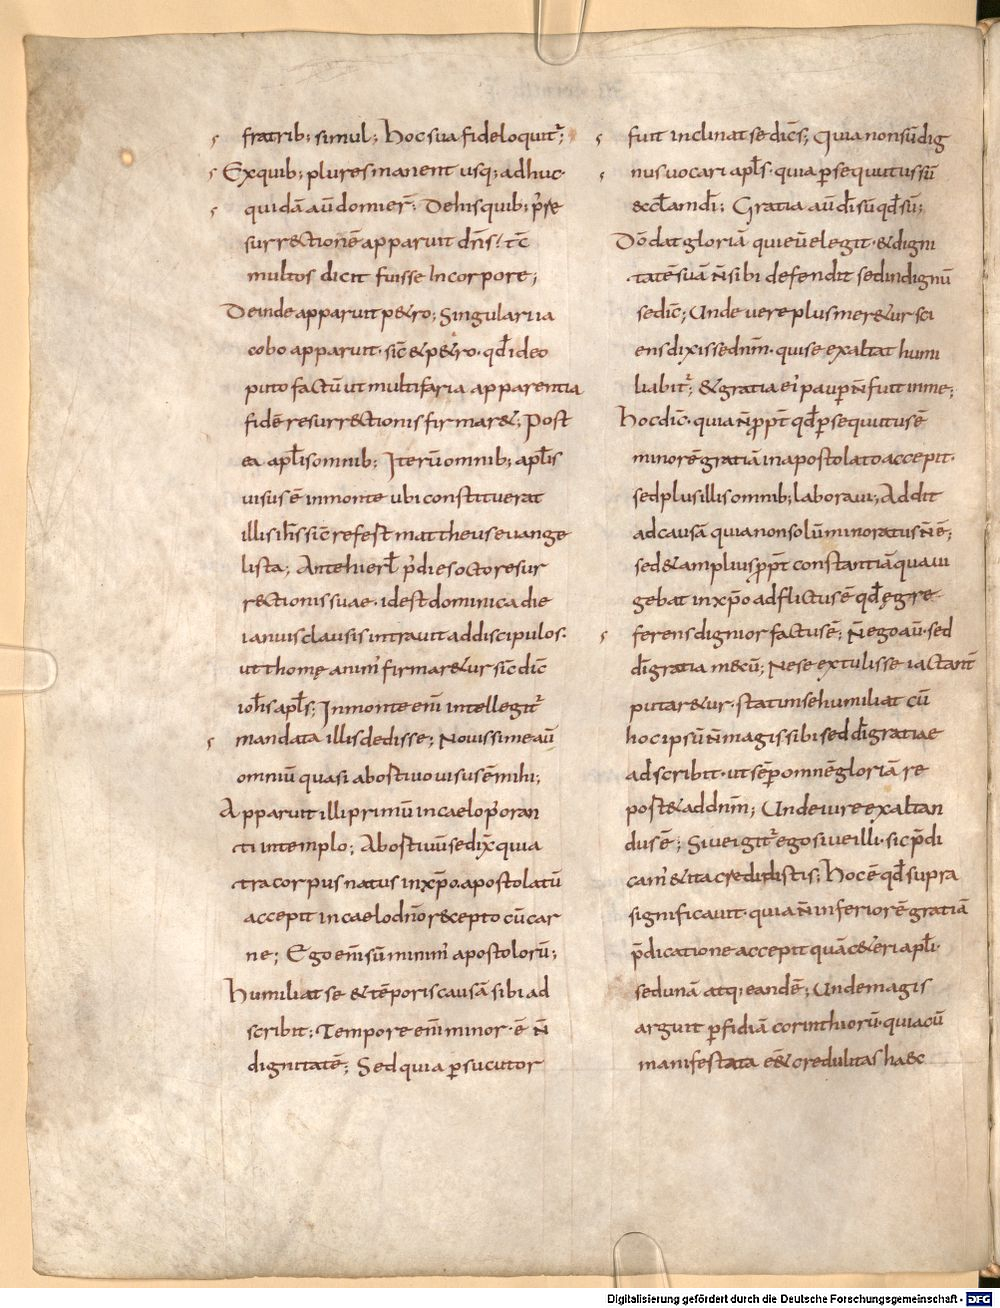 fratrib; simul; hoc sua fide loquit᷑;
Exquib; plures manent usq; adhuc
quidā aū dormier̄; Dehis quib; p̄re
surr&ctionē apparuit dn̄s! tc̄
multos dicit fuisse In corpore;
Deinde apparuit p&ro; Singulari ia
cobo apparuit· sic̄ & p&ro· qd̄ ideo
puto factū ut multifaria apparentia
fidē resurr&ctionis firmar&; Post
ea apl̄is omnib; Iterū omnib; apl̄is
uisus ē in monte ubi constituerat
illis ih̄s sic̄ refest mattheus euange
lista; Ante hierl̄ p̄ die s octo resur
r&ctionis suae· id est dominica die
ianuis clausis intrauit ad discipulos·
ut thomę anim᷑ firmar&ur sic̄ dic̄
ioh̄is apl̄s; In monte em̄ intellegit᷑
mandata illis dedisse; Nouissime aū
omniū quasi abostiuo uisus ē mihi;
Apparuit illi primū in caelo p᷑oran
ti in templo; Abostiuū se dix̄ quia
tra corpus natus in xp̄o. apostolatū
accepit in caelo dn̄o r&cepto cū car
ne; Ego em̄ sū minim᷑ apostolorū;
Humiliat se & tēporis causā sibi ad
scribit; Tempore em̄ minor· ē n̄
dignitatē; Sed quia p̱sucutor
fuit inclinat se dic̄s; Quia non sū dig
nus uocari apl̄s· quia p̱sequutus sū
eccl̄am dī; Gratia aū dī sū qd̄ sū;
Dō dat gloriā qui eū elegit· & digni
tatē suā n̄ sibi defendit sed indignū
se dic̄; Unde uere plus mer&ur sci
ens dixisse dn̄m· qui se exaltat humi
liabit᷑; & gratia ei᷑ paup̱ n̄ fuit in me;
Hoc dic̄· quia n̄ ꝓpt̄ qd̄ p̱sequutus ē
minorē gratiā in apostolato accepit·
sed plus illis omnib; laboraui; Addit
ad causā quia non solū minoratus n̄ ē;
sed & amplius ꝓpt̄ constantiā qua ui
gebat in xp̄o adflictus ē qd̄ ęgre
ferens dignior factus ē; N̄ ego aū· sed
dī gratia mecū; Ne se extulisse iactant̄
putar&ur· statim se humiliat cū
hoc ipsū n̄ magis sibi sed dī gratiae
adscribit· ut sēp̱ omnē gloriā re
post& ad dn̄m; Unde iure exaltan
dus ē; Siue igit᷑ ego siue illi· sic p̄di
cam᷑ & ita credidistis; Hoc ē qd̄ supra
significauit· quia n̄ inferiorē gratiā
p̄dicatione accepit quā c&eri apl̄i·
sed unā atq; eandē; Unde magis
arguit p̱fidiā corinthiorū· quia cū
manifestata ēē credulitas haec